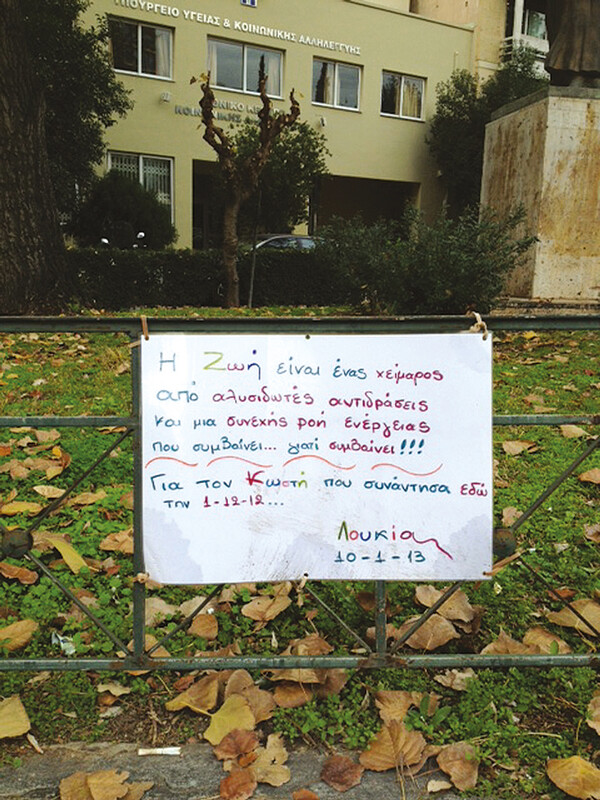 ΥΠΟΥΡΓΕΙΟ ΥΓΕΙΑΣ & ΚΟΙΝΩΝΙΚΗΣ ΑΛΛΗΛΕΓΓΥΗΣ
ΚΟΙΝΩΝΙΚΗΣ
Η Ζωή είναι ένας χείμαρος
από αλυσιδωτές αντιδράσεις
και μια συνεχής ροή ενέργειας
που συμβαίνει... γιατί συμβαίνει!!!
Για τον Κωστή που συνάντησα εδώ
την 1-12-12...
Λουκία
10-1-13